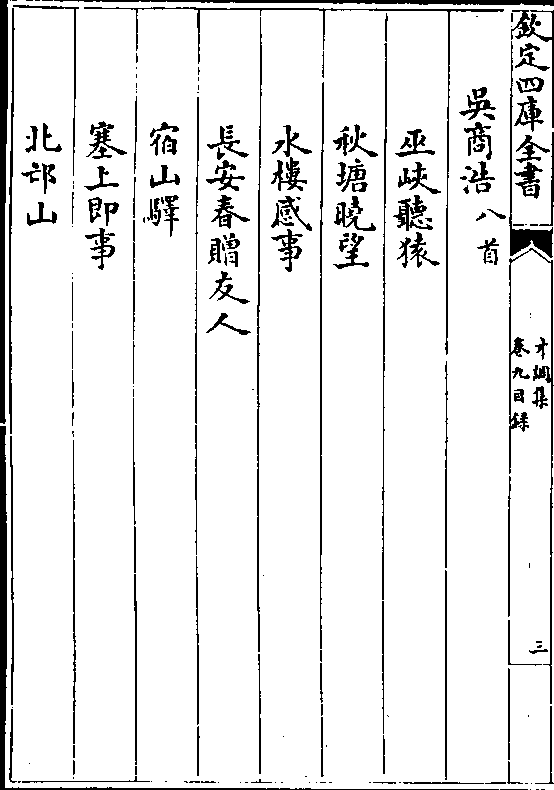 欽定四庫全書
才調集
卷九目錄
三
吳商浩八首
巫峽聽猿
秋塘曉望
水樓感事
長安春贈友人
宿山驛
塞上即事
北邙山